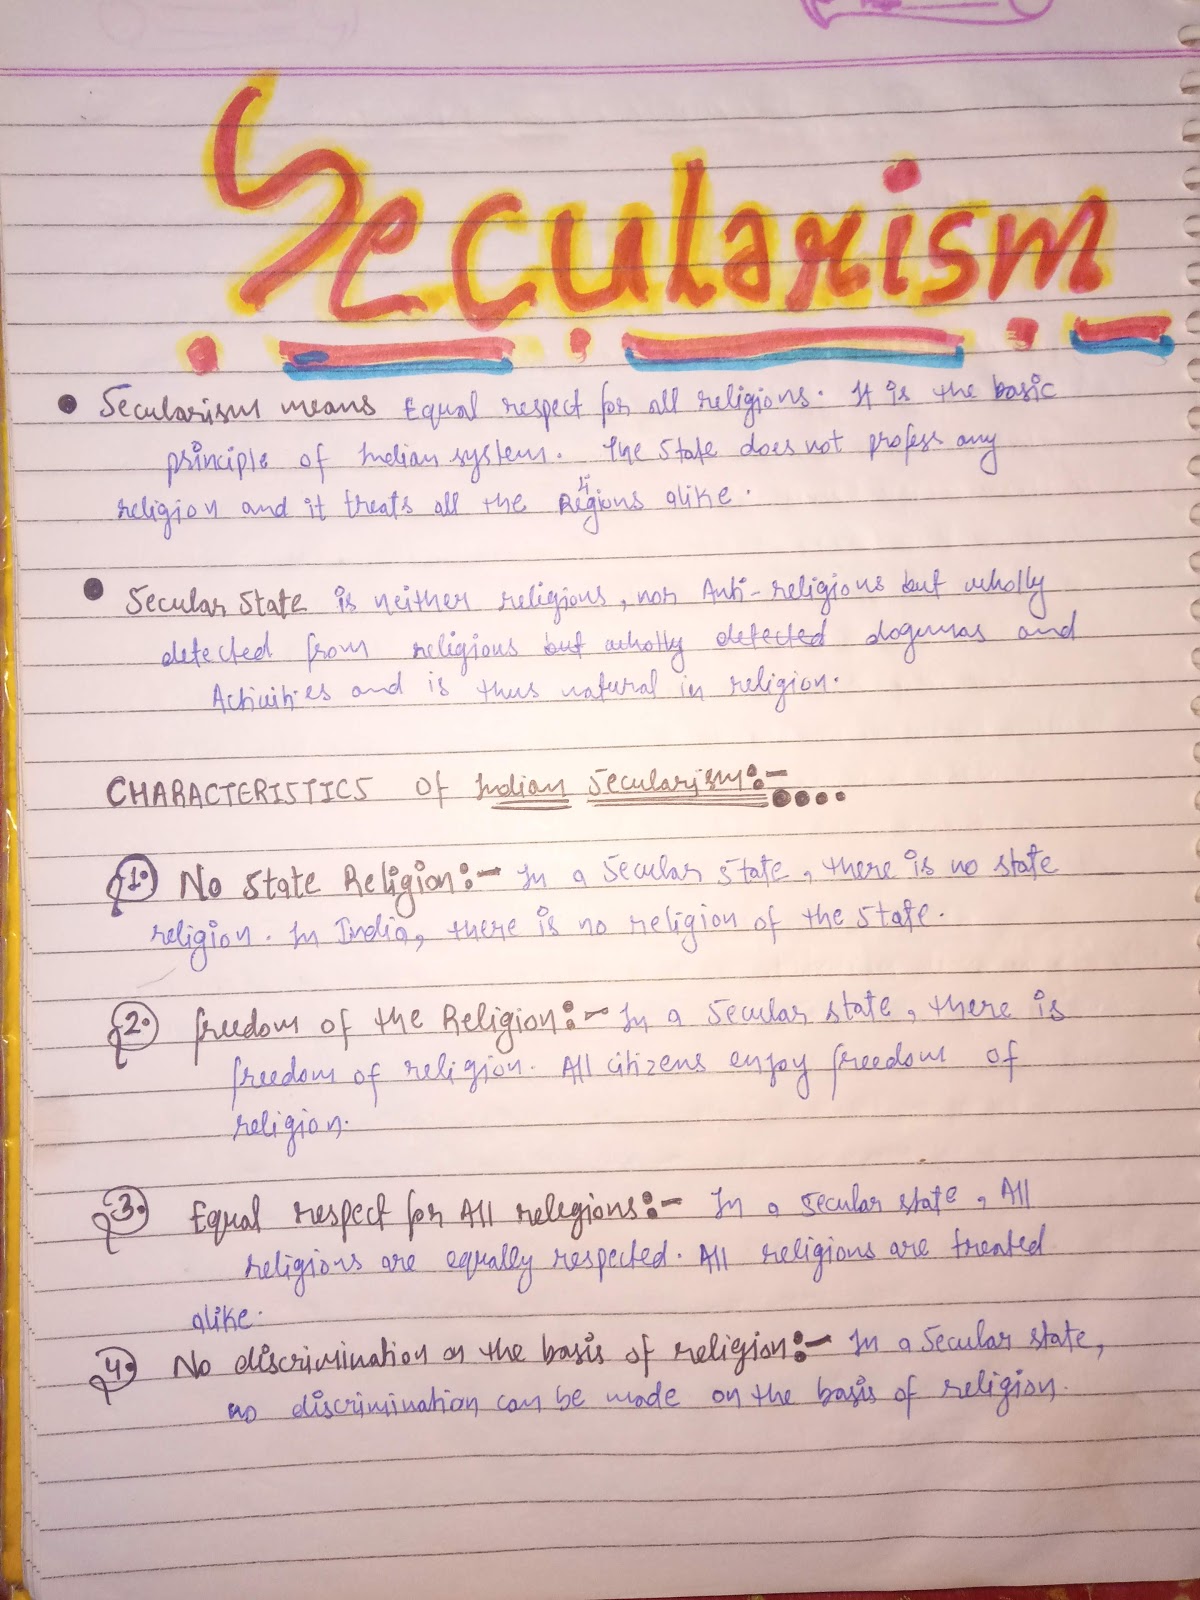 Secularism
• Secularism means Equal respect for all religions. It is the basic
principle of Indian system. The State does not profess any
religion and it treats all the Religions alike.
• Secular State is neither religious, nor Anti-religious but wholly
detected from religious but wholly detected dogumas and
Activities and is thus natural in religion.
CHARACTERISTICS of Indian Secularism:-
1. No State Religion:- In a Secular State, there is no state
religion. In India, there is no religion of the State.
2. freedom of the Religion:- In a Secular state, there is
freedom of religion. All citizens enjoy freedom of
religion.
3. Equal respect for All relegions:- In a secular state, All
religions are equally respected. All religions are treated
alike.
4. No discrimination on the basis of religion:- In a Secular state,
no discrimination can be made on the basis of religion.